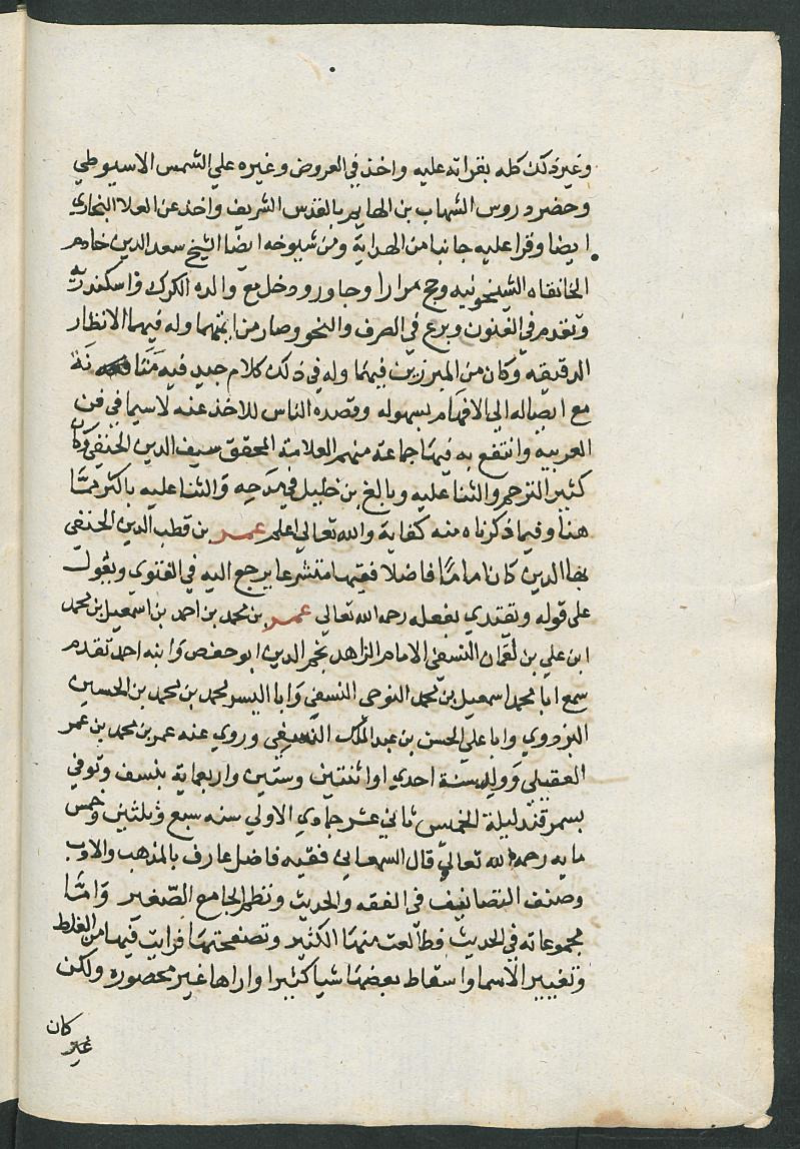 وغير ذلك كله بقراته عليه واخذ في العروض وغيره علي الشمس الاسيوطي
وحضر دروس الشهاب بن الهايم بالقدس الشريف واخذ عن العلا البخاري
ايضا وقرا عليه جانبا من الهداية ومن شيوخه ايضا الشيخ سعد الدين خادم
الخانقاه الشيخونيه وحج مرارا وجاور ودخل مع والده الكرك واسكندريه
وتقدم في الفنون وبرع في الصرف والنحو وصار من ايمتهما وله فيهما الانظار
الدقيقه وكان من المبرزين فيهما وله في ذلك كلام جيد فيه متانة
مع ايصاله الي الافهام بسهوله وقصده الناس للاخذ عنه لاسيما في فن
العربية وانتفع به فيها جماعة منهم العلامة المحقق سيف الدين الحنفي وكان
كثير الترحم والثنا عليه وبالغ بن خليل في مدحه والثنا عليه باكثر مما
هنا وفيما ذكرناه منه كفاية والله تعالي اعلم عمر بن قطب الدين الحنفي
بها الدين كان اماما فاضلا فقيها متشرعا يرجع اليه في الفتوي ويعول
علي قوله ويقتدي بفعله رحمه الله تعالي عمر بن محمد بن احمد بن اسمعيل بن محمد
ابن علي بن لقمان النسفي الامام الزاهد نجم الدين ابو حفص وابنه احمد تقدم
سمع ابا محمد اسمعيل بن محمد النوحي النسفي وابا اليسر محمد بن محمد بن الحسين
البزدوي وابا علي الحسن بن عبد الملك النسفي وروي عنه عمر بن محمد بن عمر
العقيلي وولد سنة احدي او اثنتين وستين واربعماية بنسف وتوفي
بسمرقند ليلة الخميس ثاني عشر جمادي الاولي سنه سبع وثلثين وخمس
مايه رحمه الله تعالي قال السمعاني فقيه فاضل عارف بالمذهب والادب
وصنف التصانيف في الفقه والحديث ونظم الجامع الصغير واما
مجموعاته في الحديث فطالعت منها الكثير وتصفحتها فرايت فيها من الغلط
وتغيير الاسما واسقاط بعضها شيا كثيرا واراها غير محصوره ولكن
كان